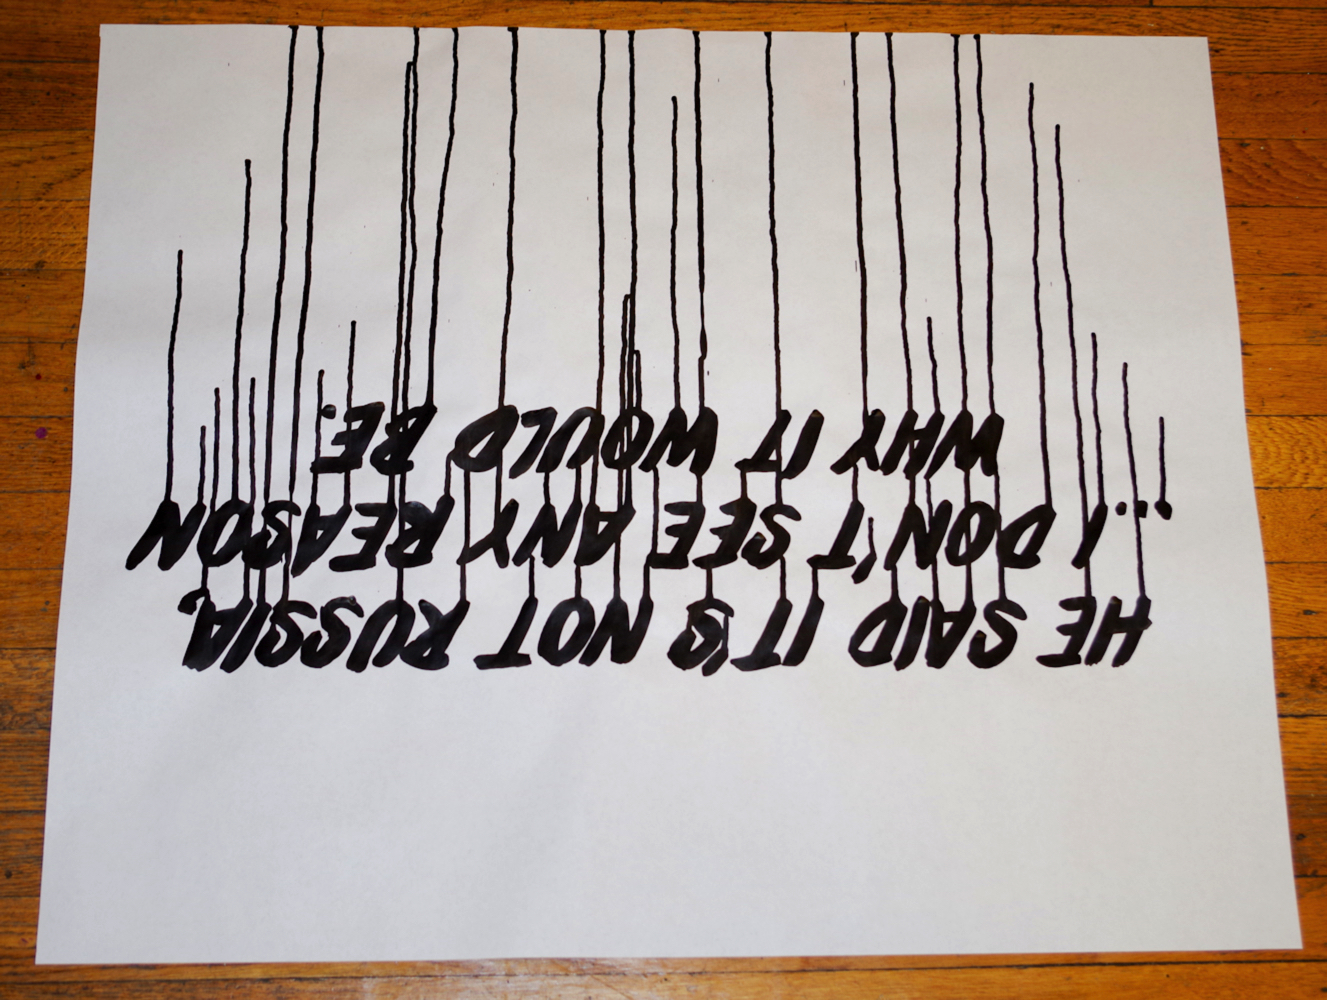 HE SAID IT'S NOT RUSSIA.
... I DON'T SEE ANY REASON
WHY IT WOULD BE.